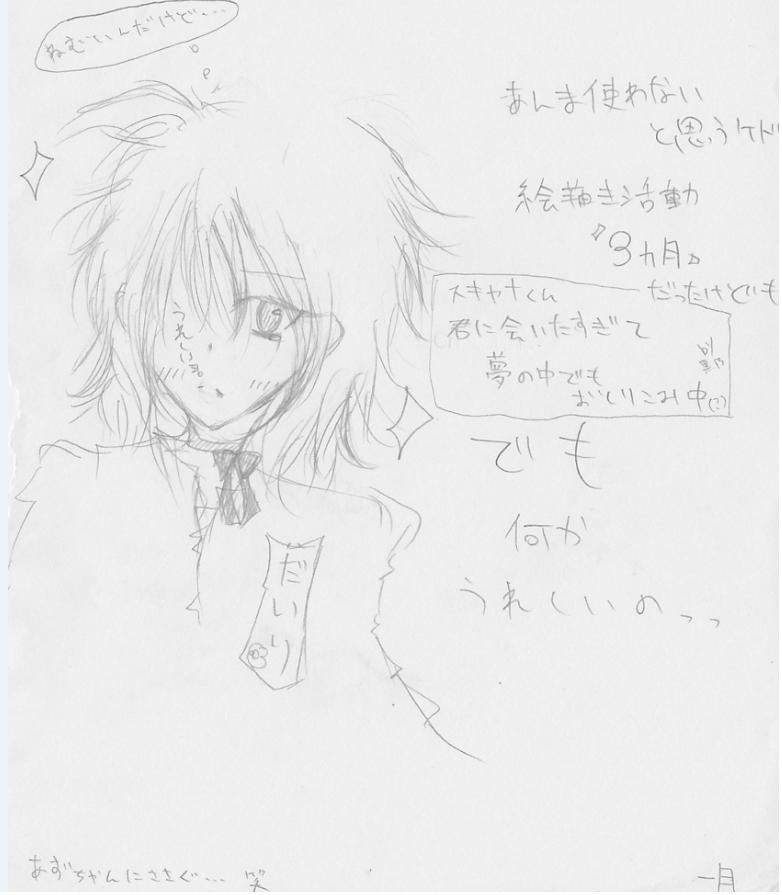 ねむいんだけど・・・
あんま使わない
と思うケド
絵描き活動
『3ヵ月』
だったけども
スキャナくん
君に会いたすぎて
夢の中でも
おとりこみ中(?)
でも
何か
うれしいの、、
うれしいヨ。
だいり
あずちゃんにささぐ・・・ 笑
一月